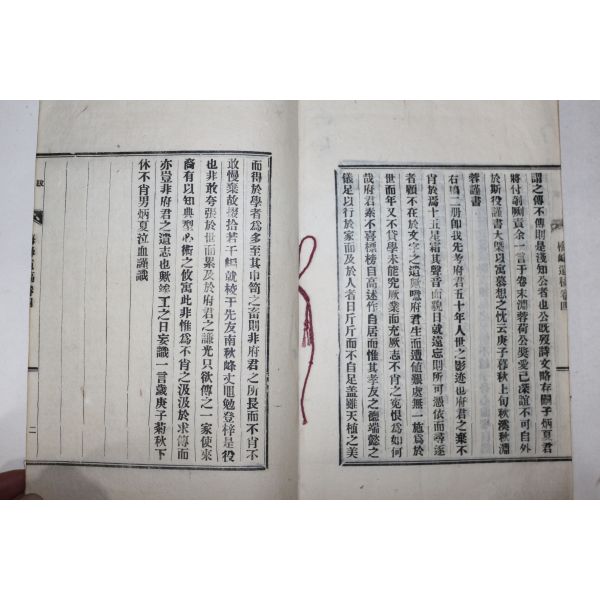 謂之傳不傳則是淺知公者也公旣歿詩文略存嗣子炳夏君
將付剞劂責余一言于卷末淵蓉荷公奬愛已深誼不可自外
於斯役謹書大槩以寓慕想之忱云庚子暮秋上旬秋溪秋淵
蓉謹書
右二册卽我先考府君五十年人世之影迹也府君之棄不
肖於爲十五星霜其聲音面貌日就遠忘則所可憑依而尋逐
者顧不在於文字之遺歟噫府君生而遭値艱處無一施爲於
世而年又不貸學未能究厥業而充厥志不肖之寃恨爲如何
哉府君素不喜標榜自高述作自居而惟其孝友之德端懿之
儀足以行於家而及於人者日斤斤而不自足蓋雖天植之美
而得於學者爲多至其巾笥之畜則非府君之所長而不肖不
敢慢棄故掇拾若干編就棱于先友南秋峰丈勉登梓是役
也非敢夸張於世而累及於府君之謙光只欲傳之一家使來
裔有以知典型心術之攸寓此非惟爲不肖之汲汲於求傳而
亦豈非府君之遺志也歟竣工之日妄識一言歲庚子菊秋下
休不肖男炳夏泣血謹識
跋
二